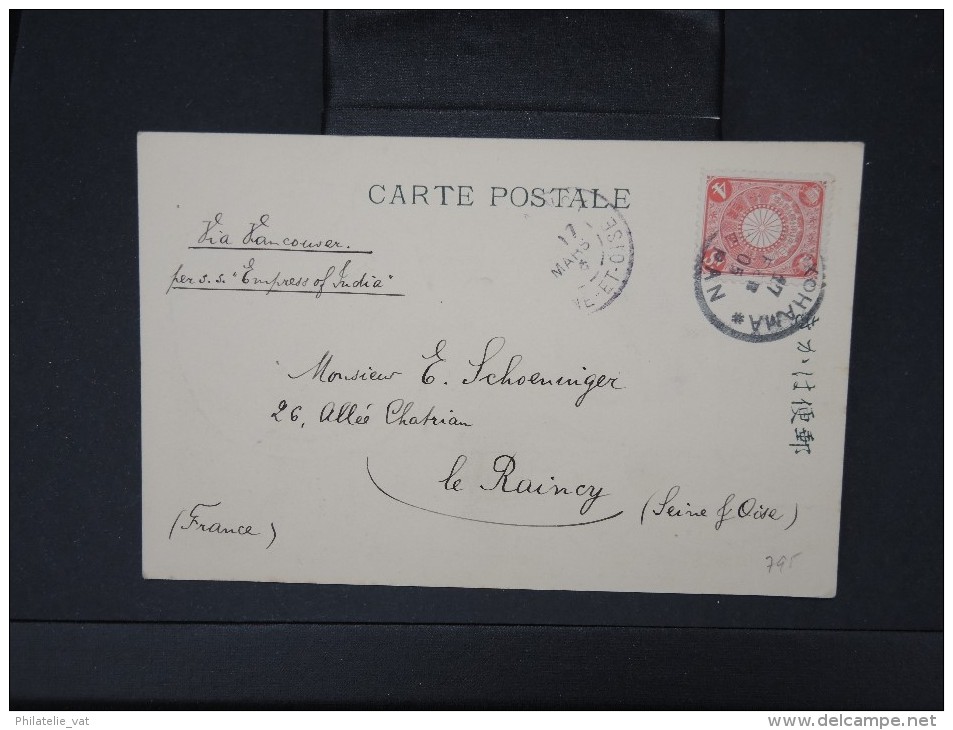 CARTE POSTALE
Via Vancouver.
per s.s. "Empress of India"
17
MARS
NE-ET-OISE
4
KOHAMA
PAN
17
05
郵便はがき
Monsieur E. Schoeninger
26, Allée Chatrian
le Raincy
(Seine & Oise)
(France)
795
Philatelie_vat
delcampe.net